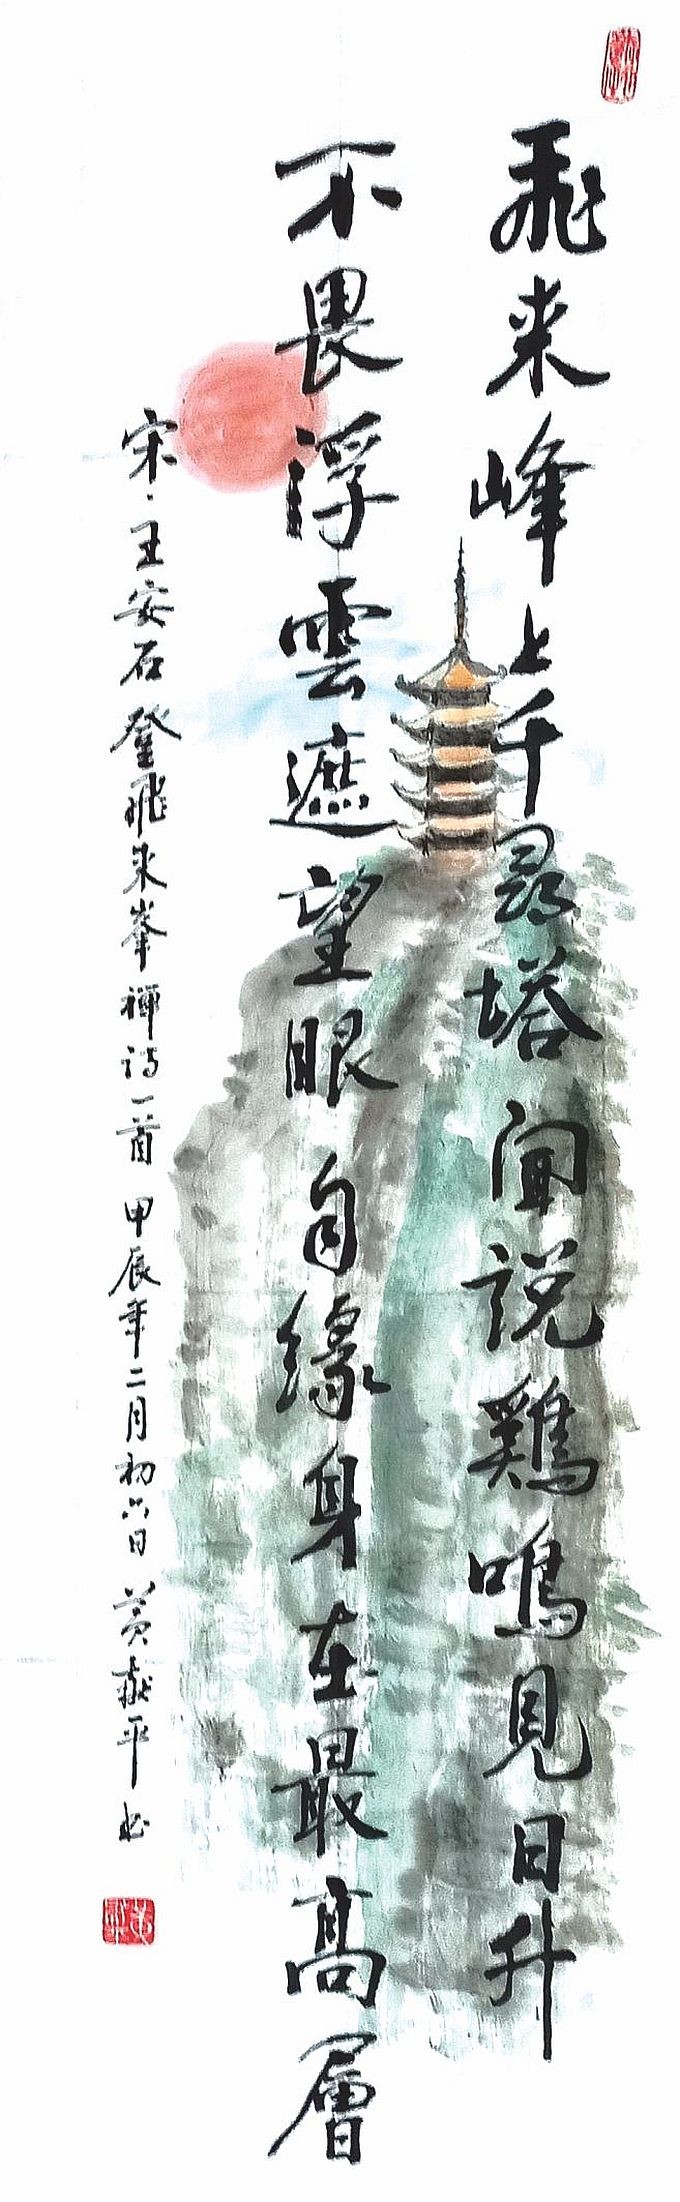 飛来峰上千尋塔聞說鷄鳴見日升
不畏浮雲遮望眼自緣身在最高層
宋·王安石登飛来峯禪詩一首 甲辰年二月初六日 黃献平书